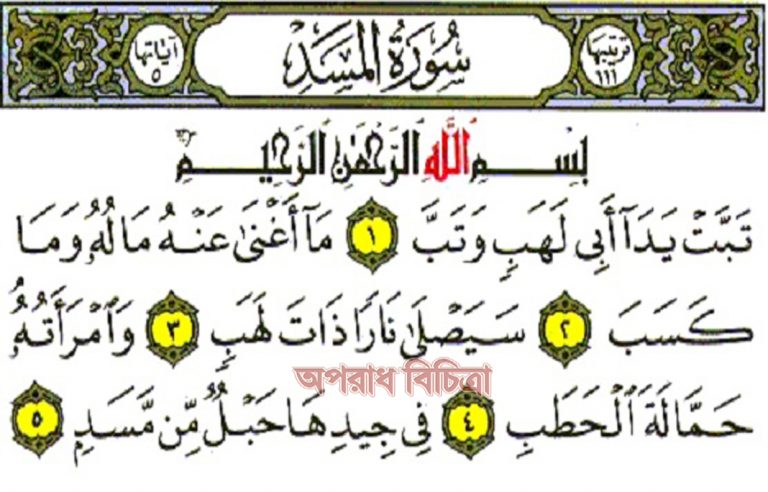 ترتيبها ١١١ سُورَةُ المَسَدِ آياتها ٥
بِسْمِ ٱللَّهِ ٱلرَّحْمَٰنِ ٱلرَّحِيمِ
تَبَّتْ يَدَآ أَبِي لَهَبٍ وَتَبَّ ١ مَآ أَغْنَىٰ عَنْهُ مَالُهُۥ وَمَا
كَسَبَ ٢ سَيَصْلَىٰ نَارًا ذَاتَ لَهَبٍ ٣ وَٱمْرَأَتُهُۥ
অপরাধ বিচিত্রা
حَمَّالَةَ ٱلْحَطَبِ ٤ فِي جِيدِهَا حَبْلٌ مِّن مَّسَدٍ ٥